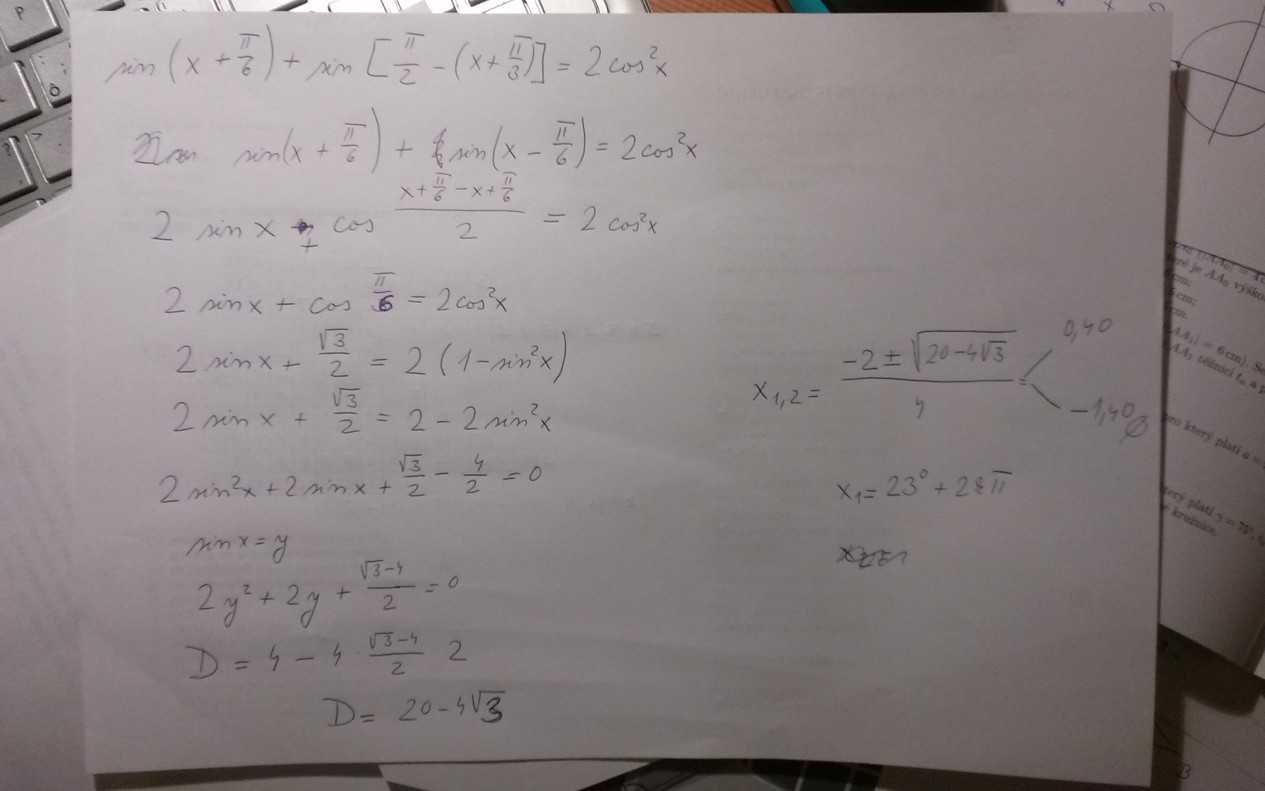 sin(x + π/6) + sin[π/2 − (x + π/3)] = 2cos²x
sin(x + π/6) + sin(x − π/6) = 2cos²x
2 sin x + cos (x + π/6 − x + π/6)/2 = 2 cos²x
2 sin x + cos π/6 = 2cos²x
2 sin x + √3/2 = 2 (1 − sin²x)
2 sin x + √3/2 = 2 − 2 sin²x
2 sin²x + 2 sin x + √3/2 − 4/2 = 0
sin x = y
2y² + 2y + (√3−4)/2 = 0
D = 4 − 4 · (√3−4)/2 2
D = 20 − 4√3
x₁,₂ = (−2 ± √(20−4√3))/4 =
0,40
−1,40 ∅
x₁ = 23° + 2kπ
6 cm
pro který platí
který platí γ = 75°,
kružnice.
P
B